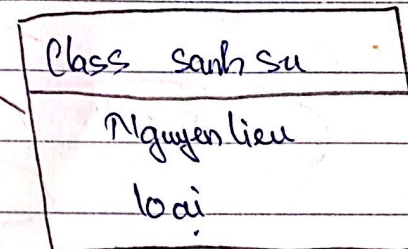 Class sanh su
Nguyen lieu
loại